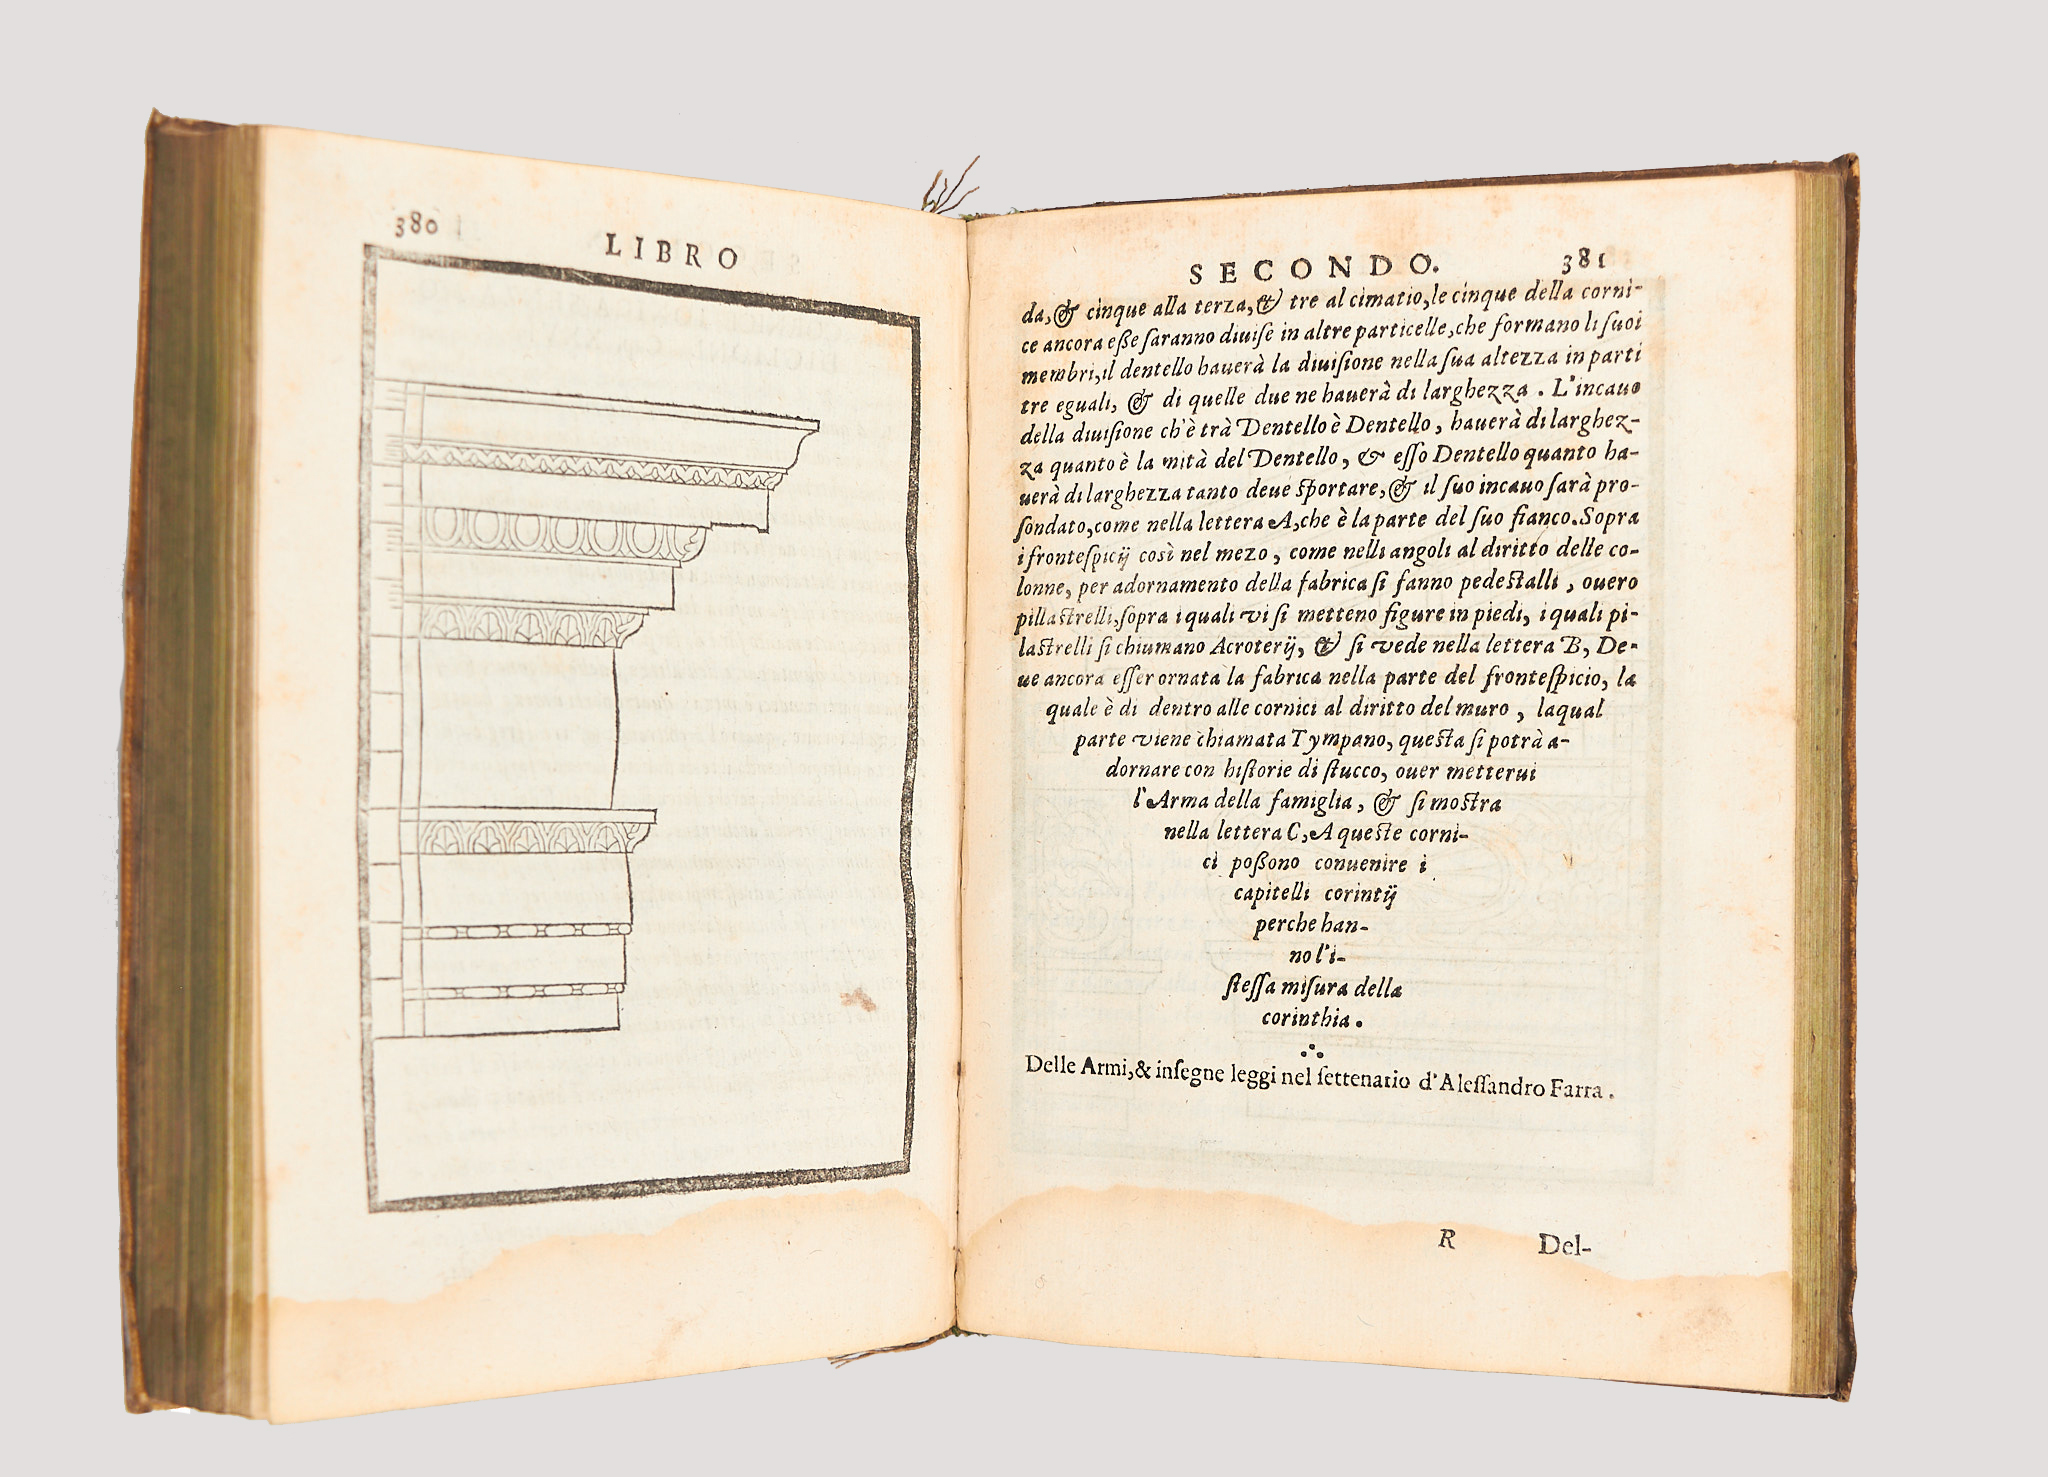 380
LIBRO
SECONDO. 381
da, & cinque alla terza, & tre al cimatio, le cinque della corni-
ce ancora eße ſaranno diuiſe in altre particelle, che formano li ſuoi
membri, il dentello hauerà la diuiſione nella ſua altezza in parti
tre eguali, & di quelle due ne hauerà di larghezza. L'incauo
della diuiſione ch'è trà Dentello è Dentello, hauerà di larghez-
za quanto è la mità del Dentello, & eſſo Dentello quanto ha-
uerà di larghezza tanto deue ſportare, & il ſuo incauo ſarà pro-
fondato, come nella lettera A, che è la parte del ſuo fianco. Sopra
i fronteſpicij così nel mezo, come nelli angoli al diritto delle co-
lonne, per adornamento della fabrica ſi fanno pedeſtalli, ouero
pillaſtrelli, ſopra i quali vi ſi metteno figure in piedi, i quali pi-
laſtrelli ſi chiumano Acroterij, & ſi vede nella lettera B, De-
ue ancora eſſer ornata la fabrica nella parte del fronteſpicio, la
quale è di dentro alle cornici al diritto del muro, laqual
parte viene chiamata Tympano, queſta ſi potrà a-
dornare con hiſtorie di ſtucco, ouer metterui
l'Arma della famiglia, & ſi moſtra
nella lettera C, A queſte corni-
ci poßono conuenire i
capitelli corintij
perche han-
no l'i-
ſteſſa miſura della
corinthia.
Delle Armi, & inſegne leggi nel ſettenario d'Aleſſandro Farra.
R Del-